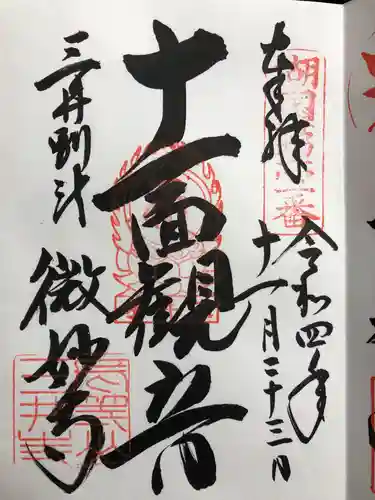 奉拝
湖国十一面観音第一番
令和四年
十一月二十三日
十一面観音
三井別所
微妙寺